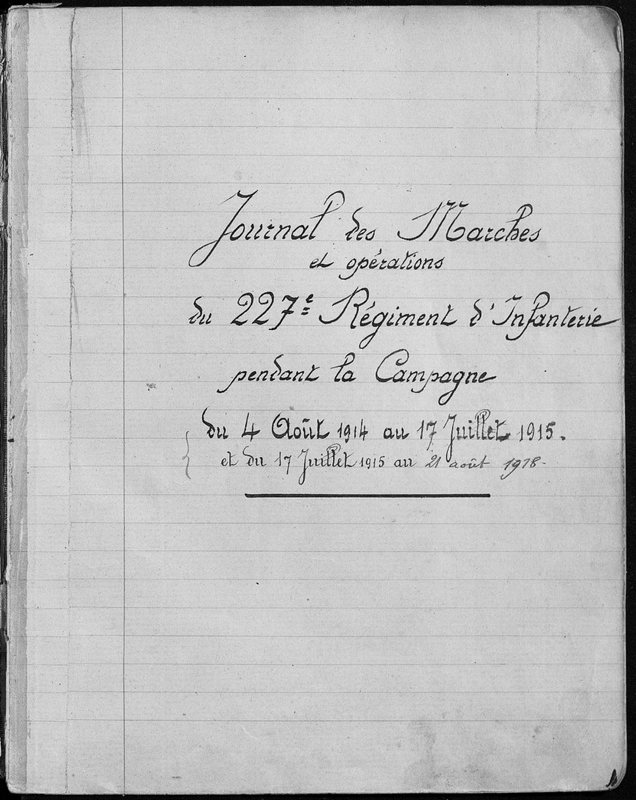 Journal des Marches
et opérations
du 227e Régiment d'Infanterie
pendant la Campagne
du 4 Août 1914 au 17 Juillet 1915.
et du 17 Juillet 1915 au 21 août 1918.